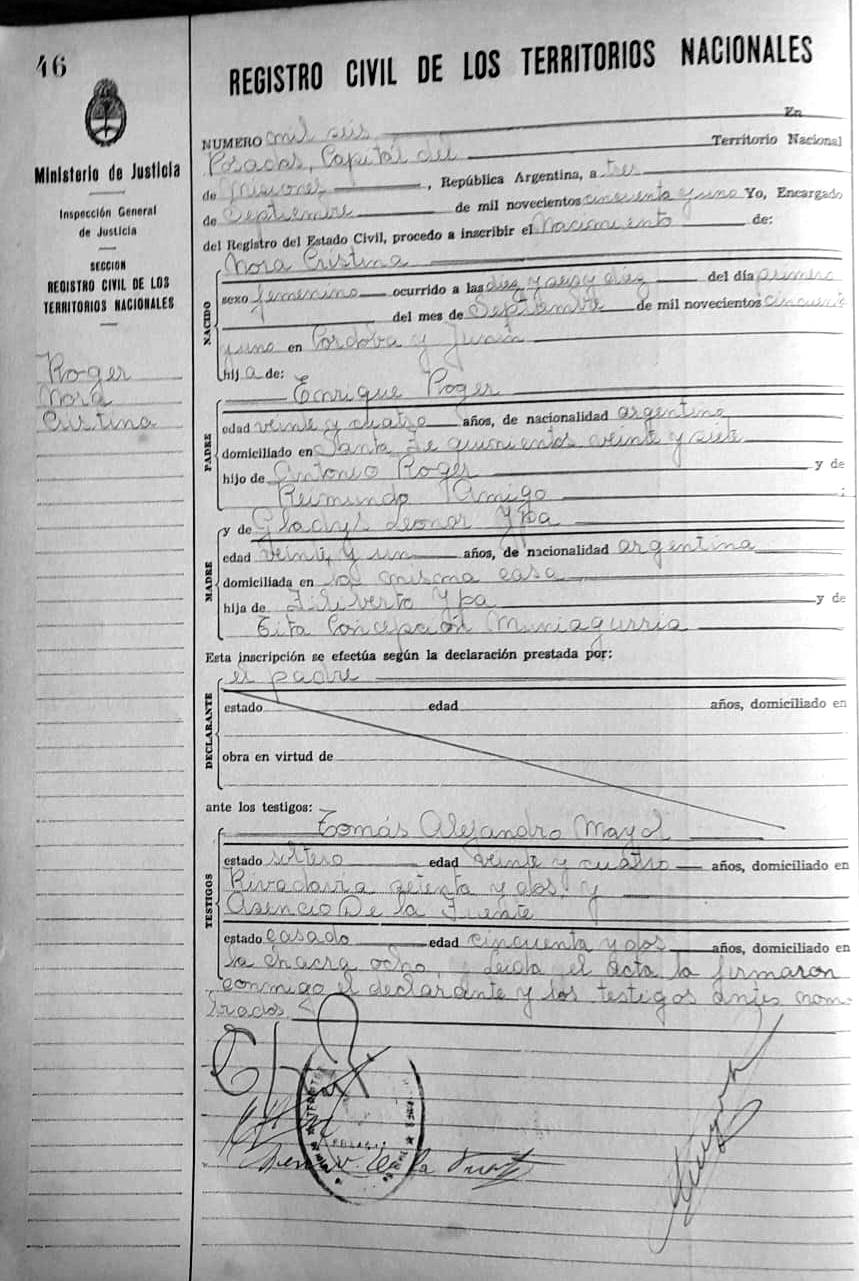 46
Ministerio de Justicia
Inspección General
de Justicia
SECCION
REGISTRO CIVIL DE LOS
TERRITORIOS NACIONALES
Roger
Nora
Cristina
REGISTRO CIVIL DE LOS TERRITORIOS NACIONALES
NUMERO mil seis En
Posadas, Capital del Territorio Nacional
de Misiones, República Argentina, a tres
de Septiembre de mil novecientos cincuenta y uno Yo, Encargado
del Registro del Estado Civil, procedo a inscribir el Nacimiento de:
NACIDO
Nora Cristina
sexo femenino ocurrido a las diez y seis y diez del día primero
del mes de Septiembre de mil novecientos cincuenta
y uno en Córdoba y Junín
hija de:
PADRE
Enrique Roger
edad veinte y cuatro años, de nacionalidad argentina
domiciliado en Santa Fe quinientos veinte y siete
hijo de Antonio Roger y de
Reimunda Amigo ;
MADRE
y de Gladys Leonor Ypa
edad veinte y un años, de nacionalidad argentina
domiciliada en la misma casa
hija de Filiberto Ypa y de
Tita Concepción Muniagurria
Esta inscripción se efectúa según la declaración prestada por:
DECLARANTE
el padre
estado edad años, domiciliado en
obra en virtud de
ante los testigos:
TESTIGOS
Tomás Alejandro Mayol
estado soltero edad veinte y cuatro años, domiciliado en
Rivadavia setenta y dos, y
Asencio De la Fuente
estado casado edad cincuenta y dos años, domiciliado en
la chacra ocho, y leída el acta la firmaron
conmigo el declarante y los testigos antes nom-
brados